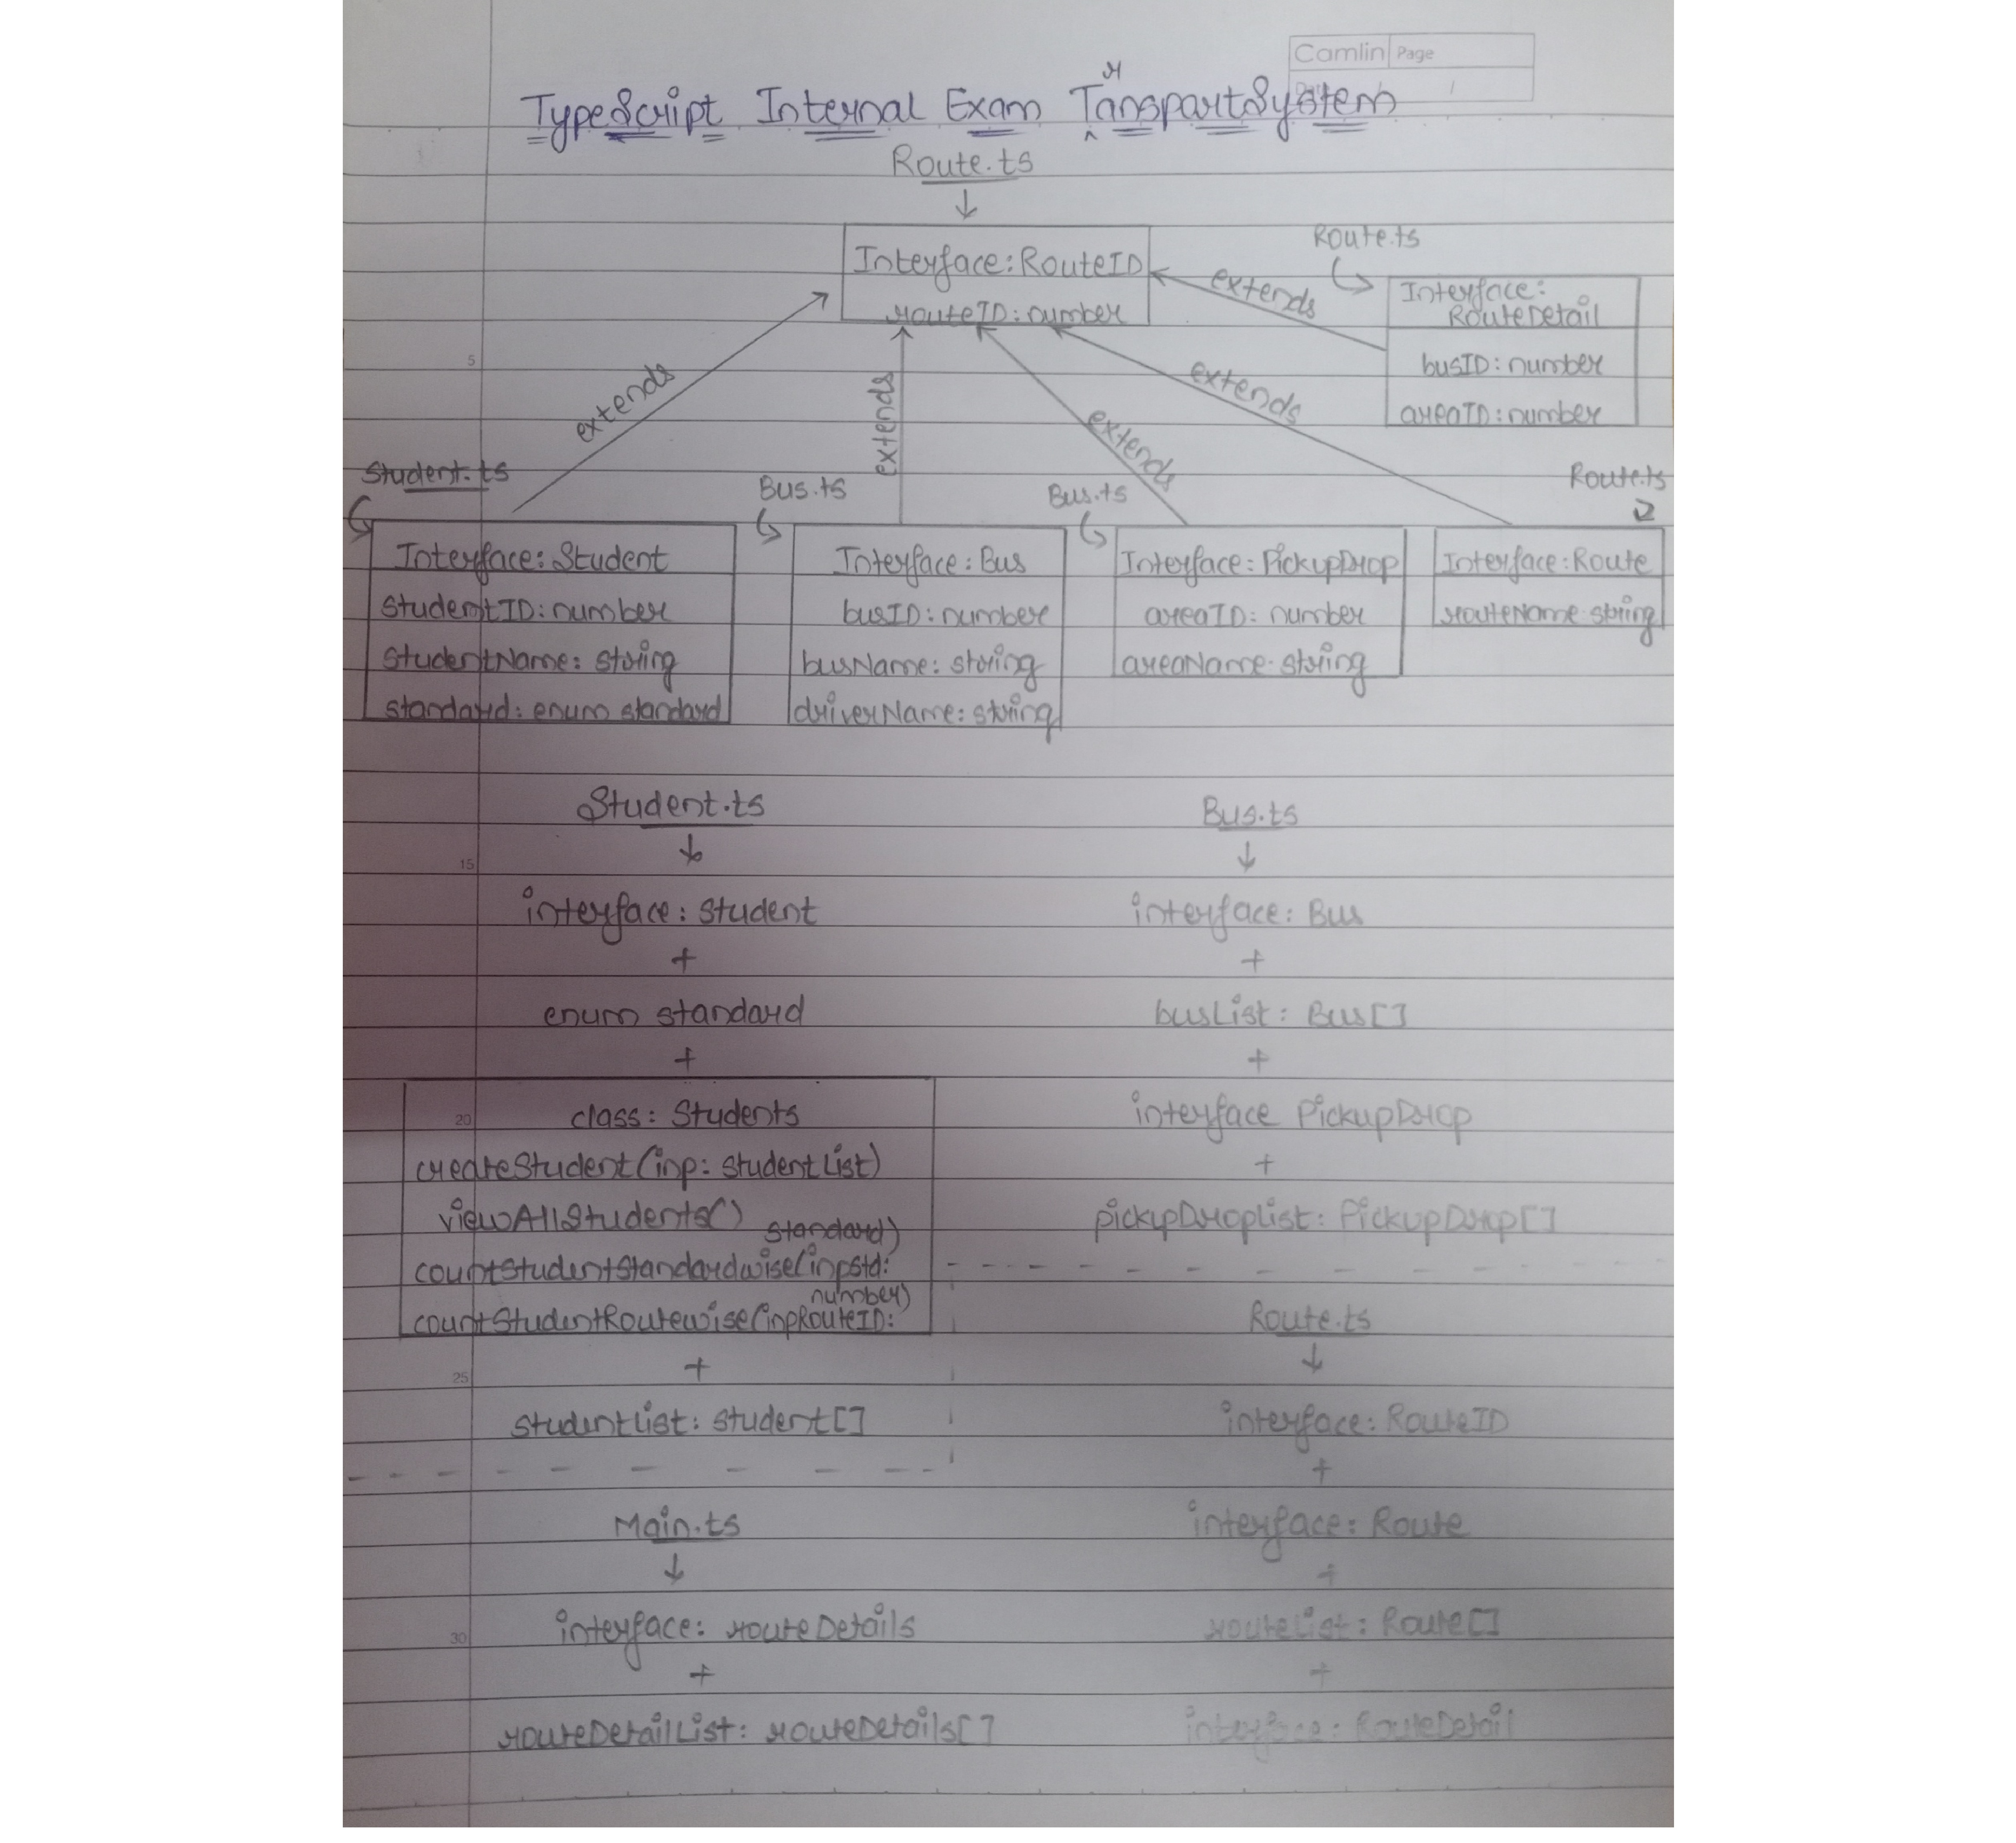 Camlin Page
TypeScript Internal Exam TransportSystem
Route.ts
Interface: RouteID
routeID: number
Route.ts
extends
Interface:
RouteDetail
busID: number
areaID: number
extends
extends
extends
extends
Student.ts
Bus.ts
Bus.ts
Route.ts
Interface: Student
StudentID: number
StudentName: string
standard: enum standard
Interface: Bus
busID: number
busName: string
driverName: string
Interface: PickupDrop
areaID: number
areaName: string
Interface: Route
routeName: string
5
Student.ts
15
interface: Student
+
enum standard
+
20
class: Students
createStudent(inp: studentList)
viewAllStudents()
countStudentStandardwise(inpStd: standard)
countStudentRoutewise(inpRouteID: number)
+
25
studentList: student[]
Bus.ts
interface: Bus
+
busList: Bus[]
+
interface PickupDrop
+
pickupDropList: PickupDrop[]
Route.ts
interface: RouteID
+
interface: Route
+
routeList: Route[]
+
interface: RouteDetail
Main.ts
interface: routeDetails
30
+
routeDetailList: routeDetails[]